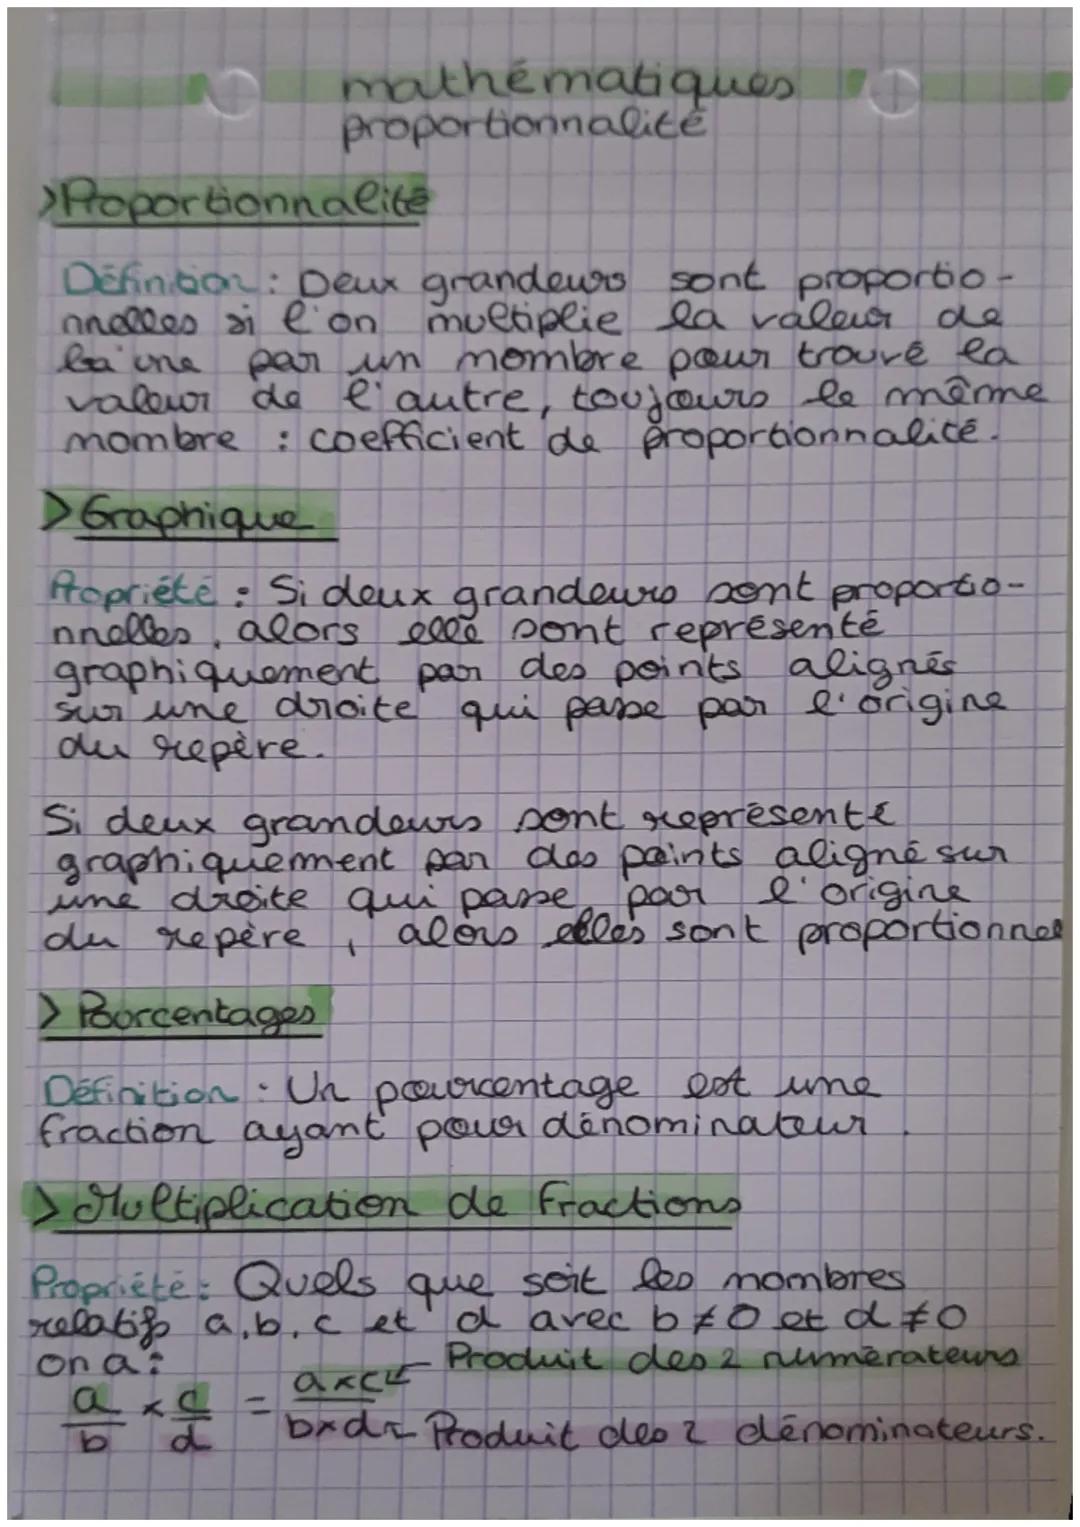 mathématiques
proportionnalité
>Proportionnalité
Définition : Deux grandeurs sont proportio-
nnelles si l'on multiplie la valeur de
la une par un nombre pour trouvé la
valeur de l'autre, toujours le même
nombre : coefficient de proportionnalité.
>Graphique
Propriété : Si deux grandeurs sont proportio-
nnelles, alors elle sont représenté
graphiquement par des points alignés
sur une droite qui passe par l'origine
du repère.
Si deux grandeurs sont représenté
graphiquement par des points aligné sur
une droite qui passe par l'origine
du repère, alors elles sont proportionnel
> Porcentages
Définition : Un pourcentage est une
fraction ayant pour dénominateur .
> Multiplication de fractions
Propriété : Quels que soit les nombres
relatifs a, b, c et d avec b ≠ 0 et d ≠ 0
on a :
a/b × c/d = a×c/b×d
Produit des 2 numérateurs
Produit des 2 dénominateurs.